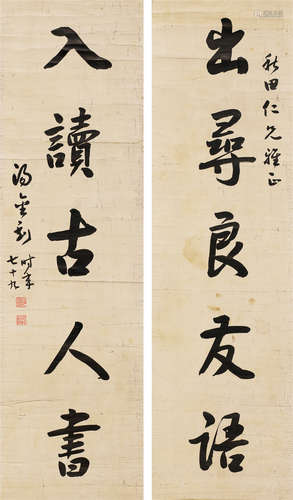 秋田仁兄雅正
出尋良友語
入讀古人書
湯金釗時年
七十九